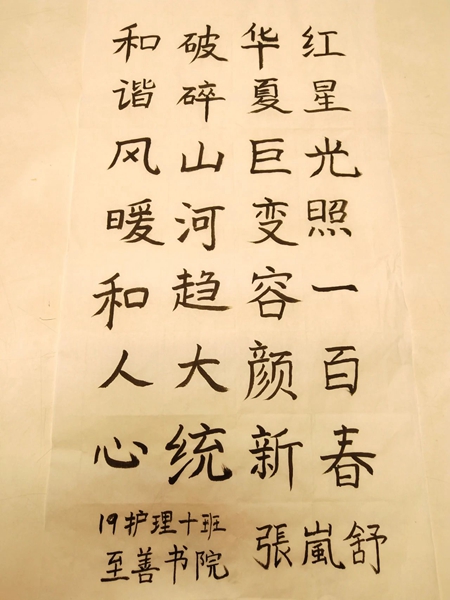 红星光照一百春
华夏巨变容颜新
破碎山河趋大统
和谐风暖和人心
19护理十班
至善书院
張嵐舒